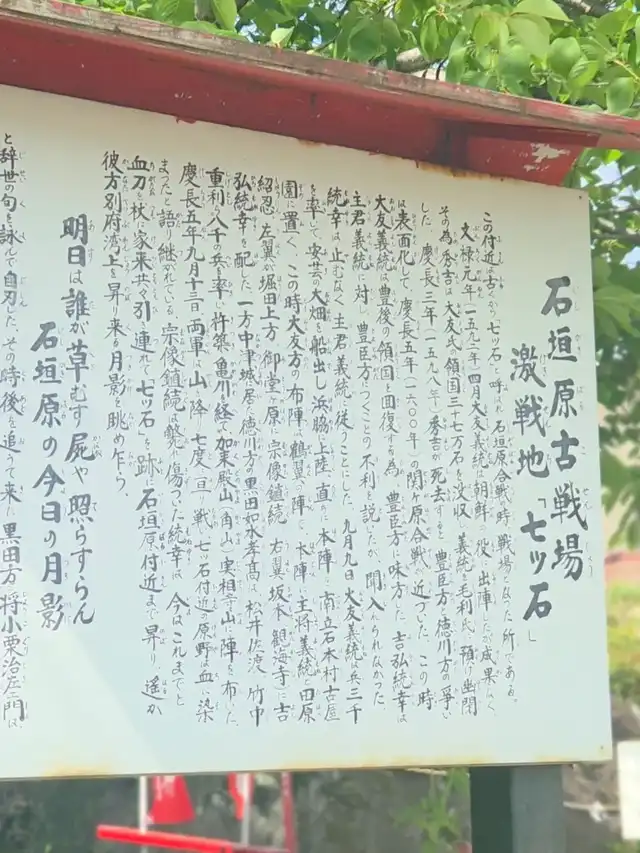 石垣原古戦場
激戦地「七ッ石」
この付近は古くから七ッ石と呼ばれ石垣原合戦時、戦場となった所である。
文禄元年(一五九二年)四月大友義統は朝鮮の役に出陣したが成果なく、
その為秀吉は大友氏の領国三十七万石を没収し義統を毛利氏に預け幽閉
した。慶長三年(一五九八年)秀吉が死去すると豊臣方と徳川方の争い
は表面化して、慶長五年(一六〇〇年)の関ヶ原合戦へと近づいた。この時
大友義統は豊後の領国を回復する為、豊臣方に味方した。吉弘統幸は
主君義統に対し豊臣方につくことの不利を説いたが、聞入れられなかった。
統幸は止むなく主君義統に従うことにした。九月九日大友義統は兵三千
を率して安芸の大畑を船出し浜脇に上陸、直ちに本陣を南立石木村古屋
園に置く。この時大友方の布陣は鶴翼の陣で、本陣に主将義統と田原
紹忍、左翼が堀田上方(御堂ヶ原)に宗像鎮続、右翼坂本(観海寺)に吉
弘統幸を配した。一方中津城に居た徳川方の黒田如水孝高は、松井佐渡、竹中
重利の八千の兵を率い杵築、亀川を経て加来殿山(角山)実相寺山に陣を布いた。
慶長五年九月十三日、両軍は山を降り七度に亘り戦い、七ッ石付近の原野は血に染
まったと語り継がれている。宗像鎮続の勢が傷ついた統幸は、今はこれまでと
血刀を杖に家来共々引き連れて「七ッ石」を跡に石垣原付近まで昇り、遙か
彼方別府湾上を昇り来る月影を眺め乍ら、
明日は誰が草むす屍や照らすらん
石垣原の今日の月影
と辞世の句を詠んで自刃した。その時後を追って来た黒田方の将小栗治左ェ門は